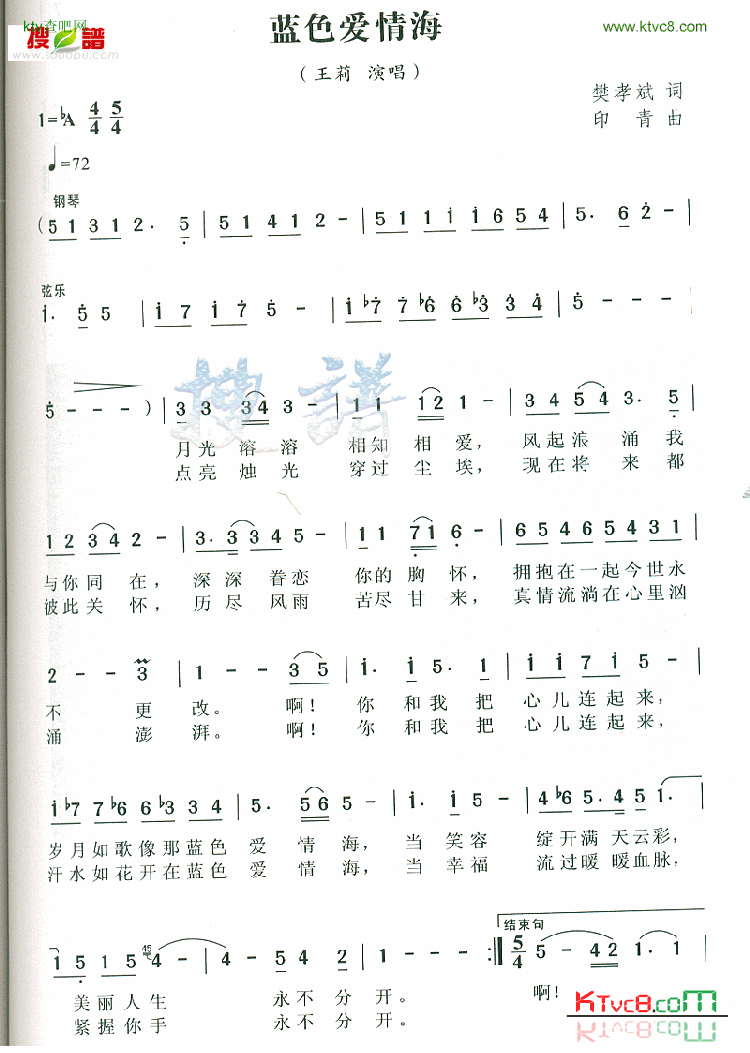 ktv查吧网
搜 谱
www.sooopu.com
www.ktvc8.com
蓝色爱情海
（王莉 演唱）
樊孝斌 词
印 青 曲
1=♭A 4/4 5/4
♩=72
钢琴
(5 1 3 1 2· 5 | 5 1 4 1 2 - | 5 1 1 1 1 6 5 4 | 5· 6 2 - |
弦乐
1· 5 5 | 1 7 1 7 5 - | 1 ♭7 7 ♭6 6 ♭3 3 4 | 5 - - - |
搜 谱
5 - - - ) | 3 3 3 4 3 - | 1 1 1 2 1 - | 3 4 5 4 3· 5 |
月光 溶 溶 相知 相 爱， 风起 浪 涌 我
点亮 烛 光 穿过 尘 埃， 现在 将 来 都
1 2 3 4 2 - | 3· 3 3 4 5 - | 1 1 7 1 6 - | 6 5 4 6 5 4 3 1 |
与你 同 在， 深 深 眷恋 你的 胸 怀， 拥抱在一起今世永
彼此 关 怀， 历 尽 风雨 苦尽 甘 来， 真情流淌在心里汹
2 - - 3 | 1 - - 3 5 | 1· 1 5· 1 | 1 1 7 1 5 - |
不 更 改。 啊！ 你 和我 把 心儿连起来，
涌 澎 湃。 啊！ 你 和我 把 心儿连起来，
1 ♭7 7 ♭6 6 ♭3 3 4 | 5· 5 6 5 - | 1· 1 5 - | 4 ♭6 5· 4 5 1 |
岁月如歌像那蓝色 爱 情 海， 当 笑容 绽开满 天云彩，
汗水如花开在蓝色 爱 情 海， 当 幸福 流过暖 暖血脉，
1 5 1 5 4 - | 4 - 5 4 2 | 1 - - - :‖
结束句
5/4 5 - 4 2 1· 1 |
美丽人生 永不 分 开。 啊！
紧握你手 永不 分 开。
KTvc8.com